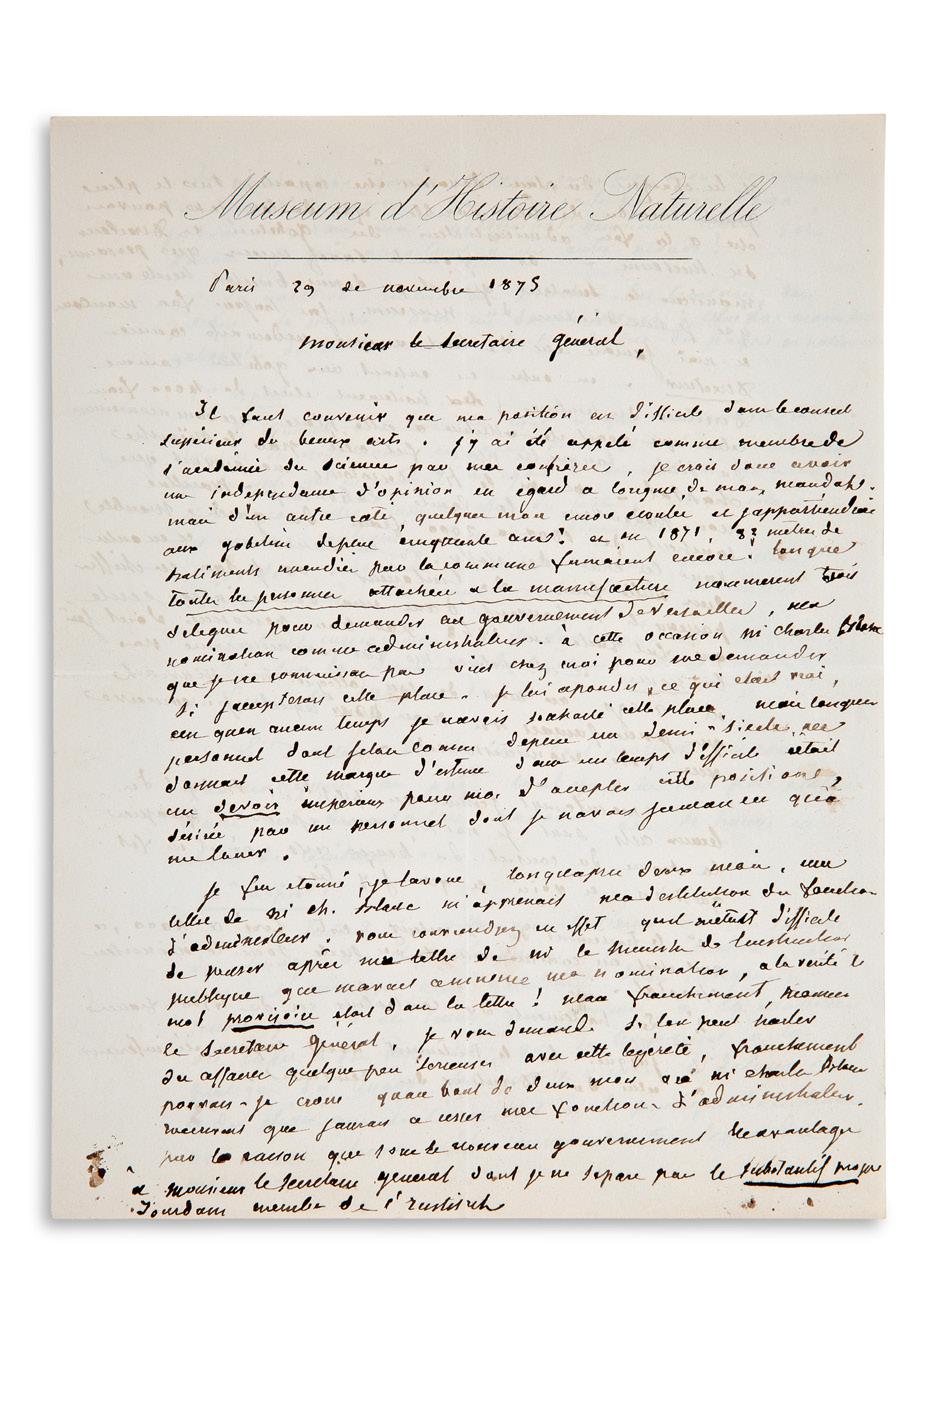 Museum d'Histoire Naturelle
Paris 29 de novembre 1875
monsieur le secretaire général,
Il faut convenir que ma position est difficile dans le conseil
supérieur des beaux arts. j'y ai été appelé comme membre de
l'académie des sciences par mes confrères, je crois donc avoir
une independance d'opinion en égard a l'origine de mon mandat.
mais d'un autre coté, quelque mon encore et j'appartiendrais
aux gobelins depuis cinquante ans! et en 1871, 83 metres de
batiments incendiés par la commune fumaient encore! lorsque
toutes les personnes attachées a la manufacture nommerent trois
delegués pour demander au gouvernement de versailles, ma
nomination comme administrateur. à cette occasion mr charles Blanc
que je ne connaissais pas vint chez moi pour me demander
si j'accepterais cette place. je lui repondis, ce qui etait vrai,
qu'en aucun temps je n'avais souhaité cette place, mais lorsqu'un
personnel dont j'etais connu depuis un demi-siecle me
donnait cette marque d'estime dans un temps difficile c'était
un devoir imperieux pour moi d'accepter cette position,
désirée par un personnel dont je n'avais jamais eu qu'à
me louer.
je fus etonné, je l'avoue, lorsqu'apres deux mois, une
lettre de mr ch. Blanc m'apprenait ma destitution des fonctions
d'administrateur. vous comprendrez en effet qu'il m'était difficile
de penser après une lettre de mr le ministre de l'instruction
publique qui m'avait annoncé ma nomination, a la verité le
mot provisoire était dans la lettre! mais franchement, monsieur
le Secretaire général, je vous demande si l'on peut traiter
des affaires quelque peu serieuses avec cette légèreté, franchement
pouvais-je croire qu'au bout de deux mois mr charles Blanc
m'ecrirait que j'aurais a cesser mes fonctions d'administrateur.
par la raison que sous le nouveau gouvernement
a monsieur le Secretaire general dont je ne separe pas le substantif propre
Jourdain membre de l'Institut